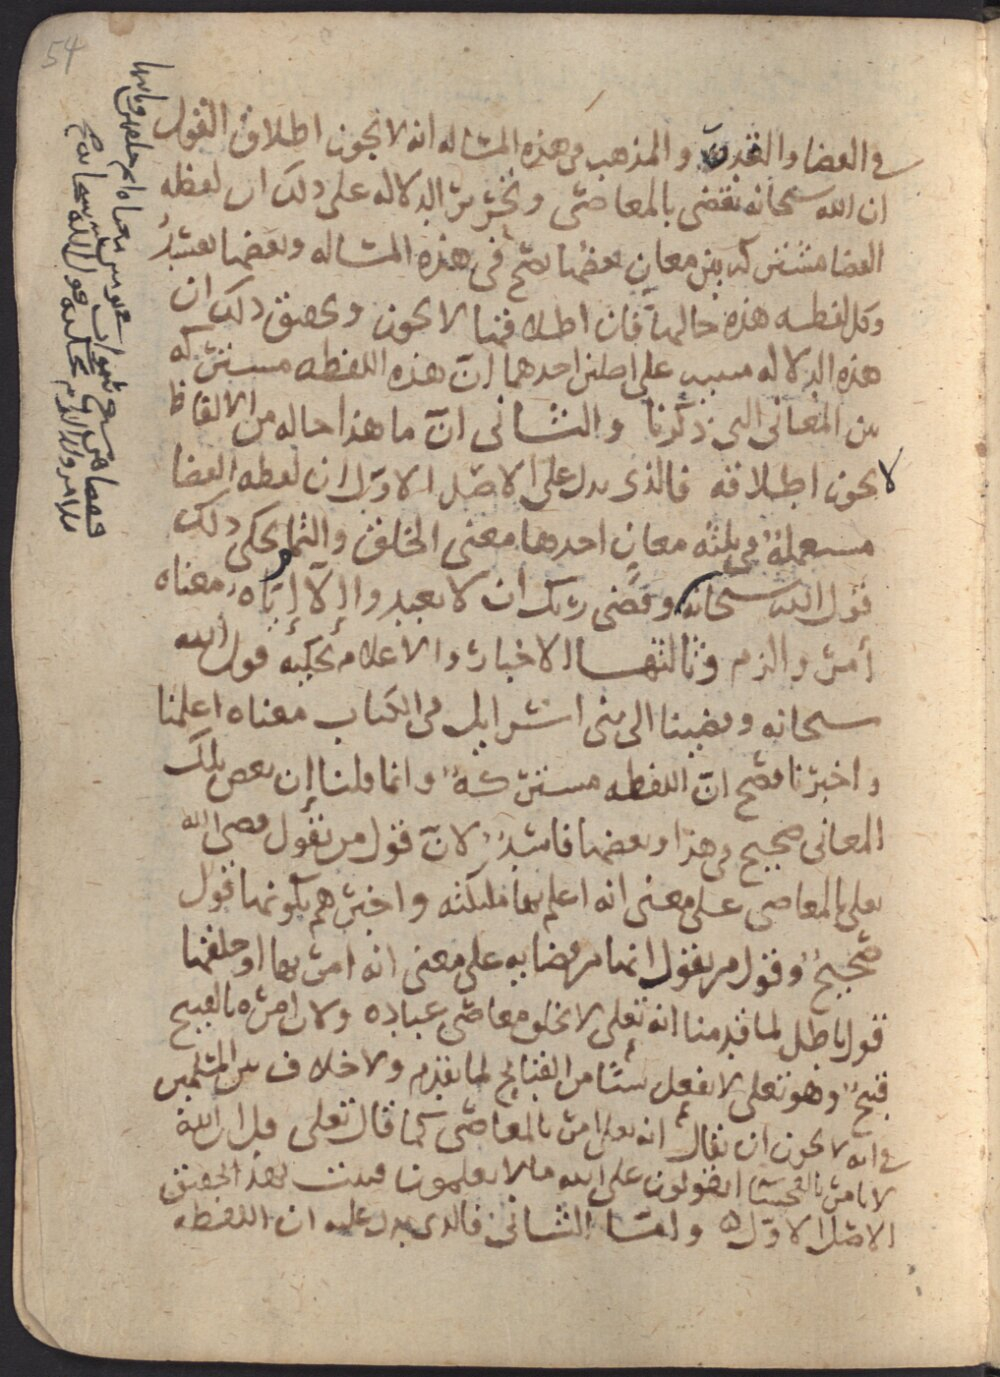 54
في القضا والقدر والمذهب في هذه المسٔاله انه لا يجوز اطلاق القول
ان الله سبحانه يقضي بالمعاصي وتحرير الدلاله على ذلك ان لفظه
القضا مشتركه بين معانٍ بعضها يصح في هذه المسٔاله وبعضها يفسد
وكل لفظه هذه حالها فان اطلاقها لا يجوز وتحقيق ذلك ان
هذه الدلاله مبنيه على اصلين احدهما انّ هذه اللفظه مشتركه
بين المعاني التي ذكرنا والثاني انّ ما هذا حاله من الالفاظ
لا يجوز اطلاقه فالذي يدل على الاصل الاوّل ان لفظه القضا
مستعملةٌ في ثلثه معانٍ احدها معنى الخلق والتمام يحكي ذلك
قول الله سبحانه وقضى ربك ان لا تعبدوا إلّا إيّاه معناه
أمر والزم وثالثها الاخبار والاعلام يحكيه قول الله
سبحانه وقضينا الى بني اسرايل في الكتاب معناه اعلمنا
واخبرنا فصح انّ اللفظه مشتركةٌ وانما قلنا إن بعض تلك
المعاني صحيح في هذا وبعضها فاسدٌ لانّ قول من يقول قضى الله
تعلى بالمعاصي على معنى انه اعلم بها ملٔيكته واخبرهم بكونها قول
صحيحٌ وقول من يقول انها من قضايه على معنى انه امر بها او خلقها
قول باطل لما قدمنا انه تعلى لا يخلق معاصي عباده ولان امره بالقبيح
قبيحٌ وهو تعلى لا يفعل شئًا من القبايح لما تقدم ولا خلاف بين المسلمين
في انه لا يجوز ان يقال انه تعلى امر بالمعاصي كما قال تعلى قل ان الله
لا يامر بالفحشا اتقولون على الله ما لا تعلمون فثبت بهذا تحقيق
الاصل الاوّل وامّا الثاني فالذي يدل عليه ان اللفظه